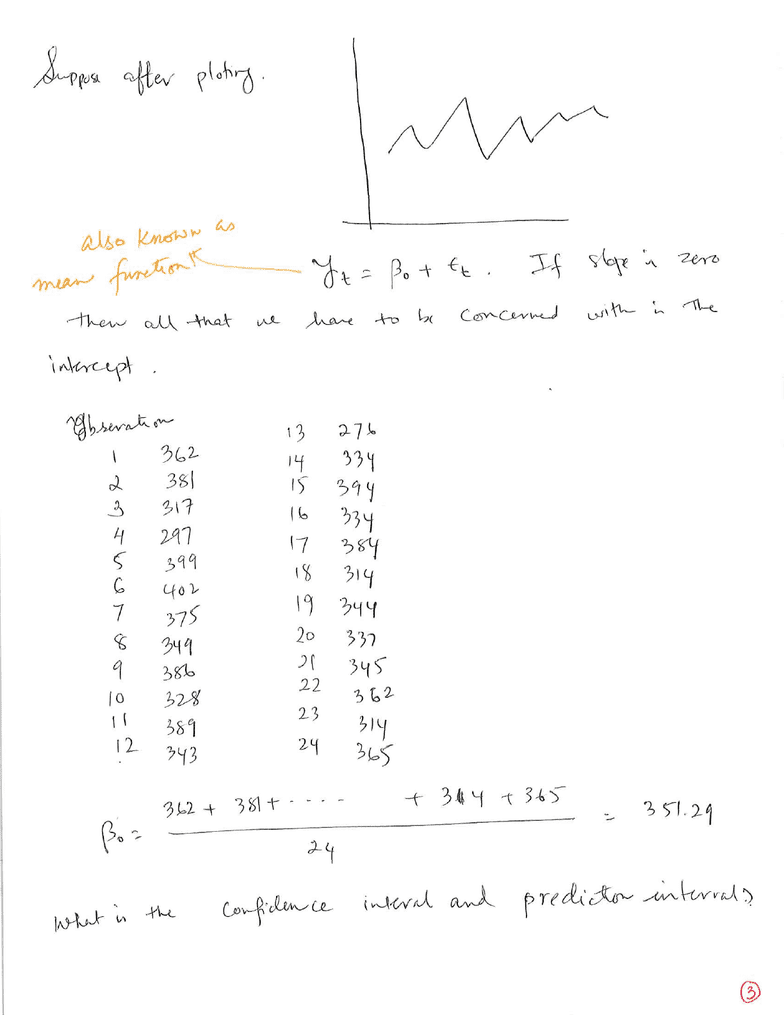 Suppose after ploting.
also known as
mean function
y_t = β₀ + ε_t. If slope is zero
then all that we have to be concerned with is the
intercept.
Obseration
1 362
2 381
3 317
4 297
5 399
6 402
7 375
8 349
9 386
10 328
11 389
12 343
13 276
14 334
15 394
16 334
17 384
18 314
19 344
20 337
21 345
22 362
23 314
24 365
β₀ = (362 + 381 + ---- + 314 + 365) / 24 = 351.29
What is the confidence interval and prediction interval?
3